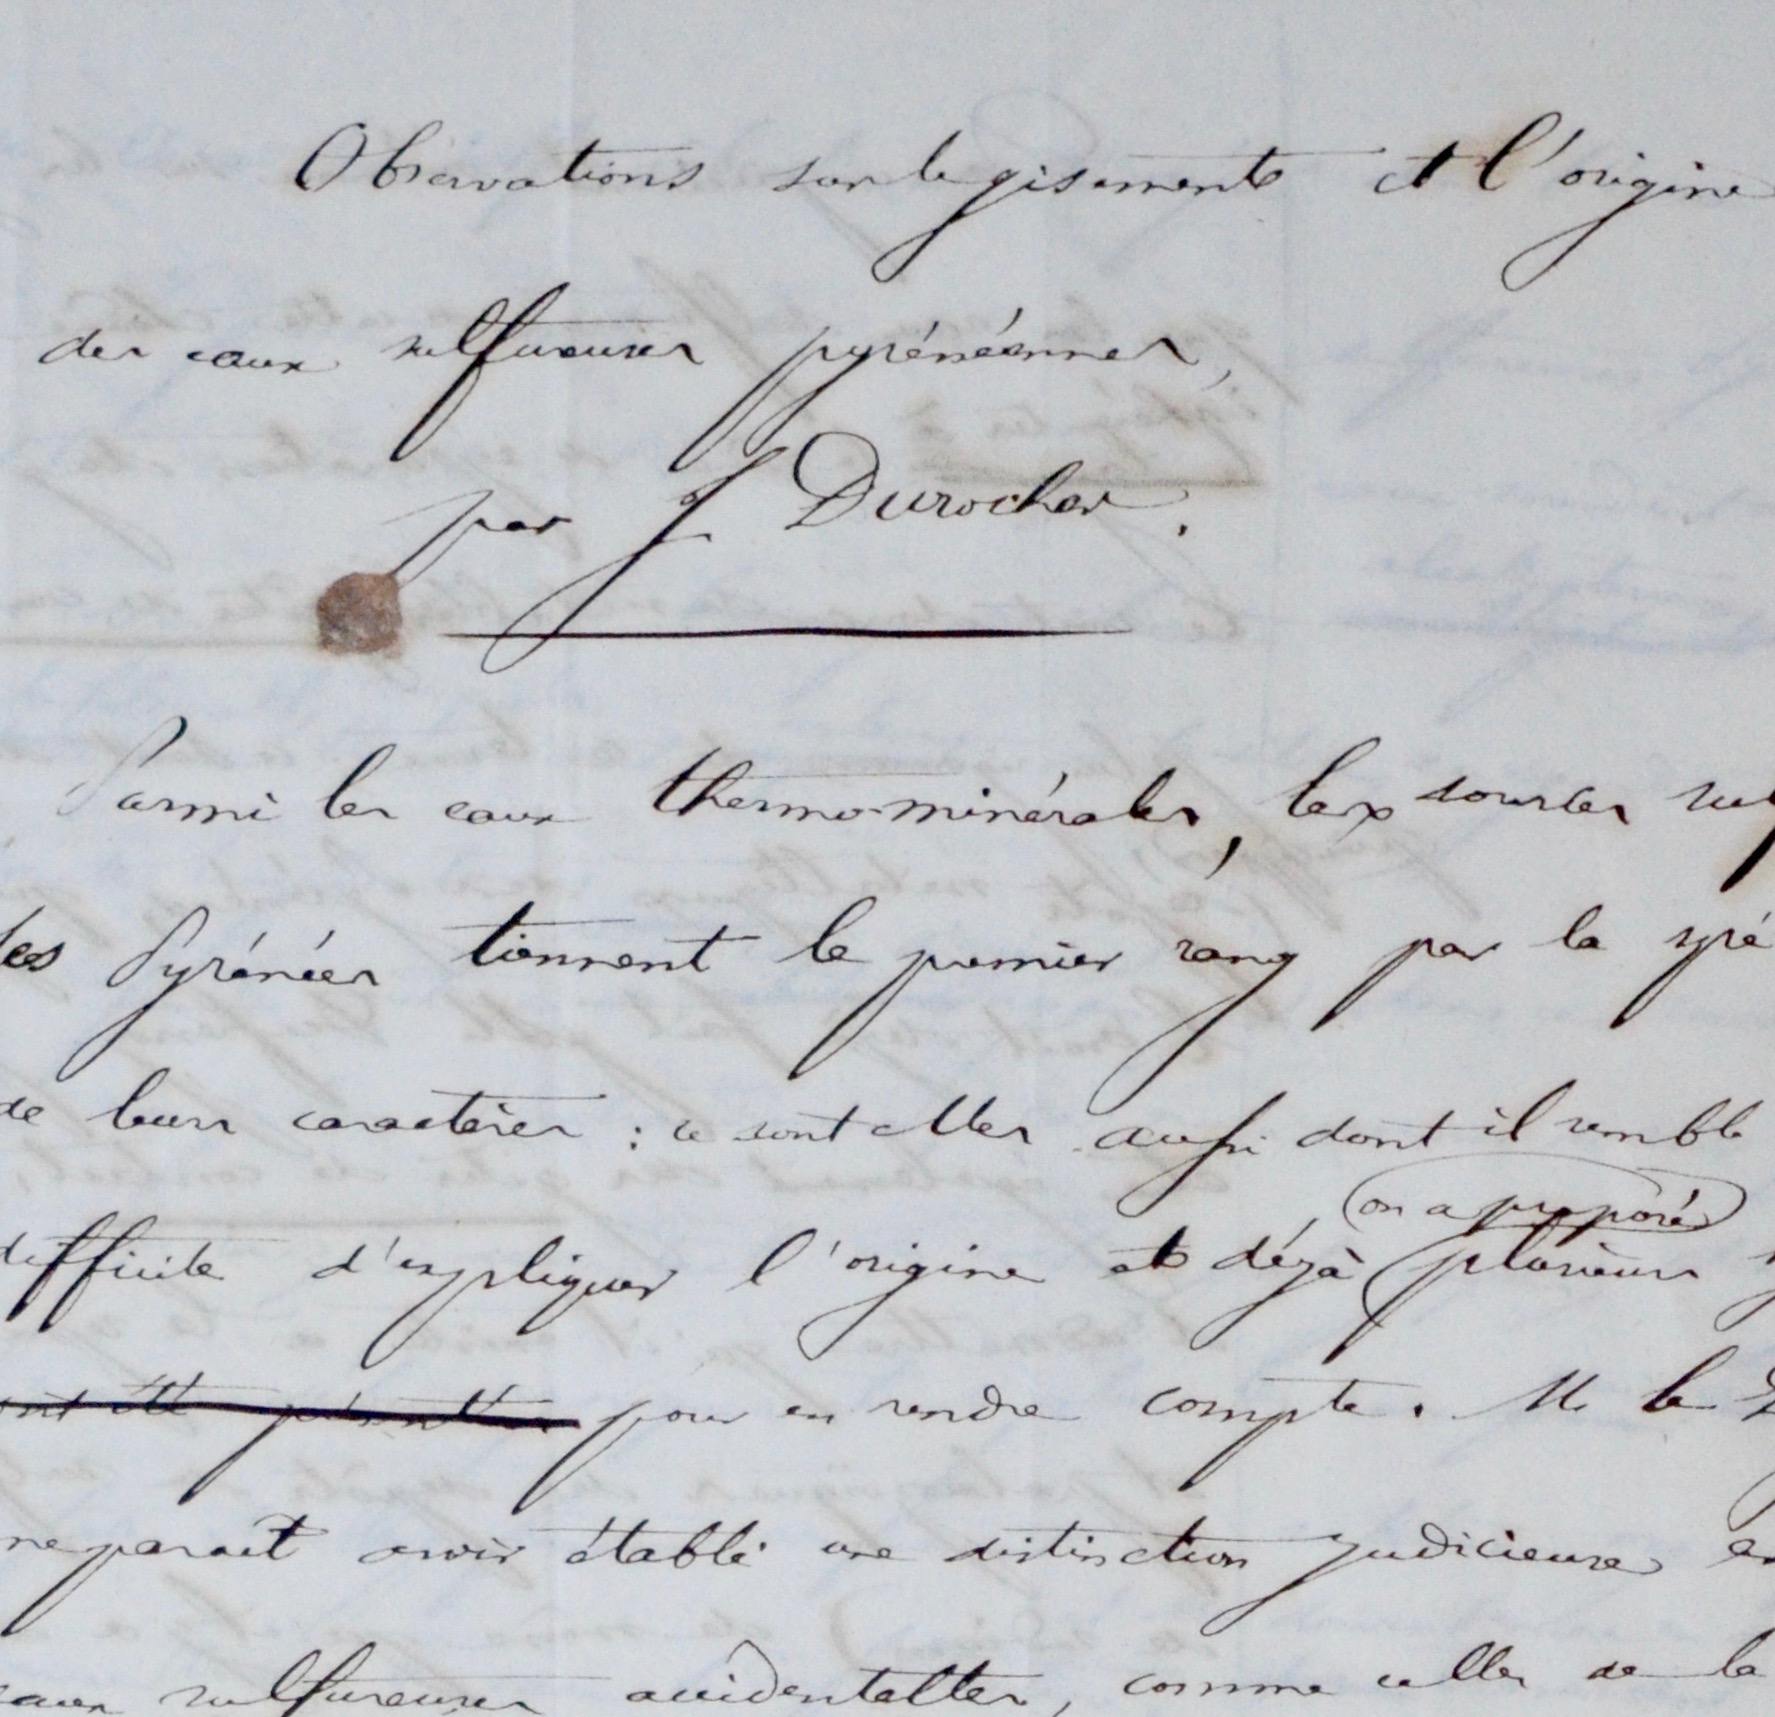 Observations sur le gisement et l'origine
des eaux sulfureuses pyrénéennes,
par J Durocher.
Parmi les eaux thermo-minérales, les sources sul
les Pyrénées tiennent le premier rang par la spé
de leurs caractères : ce sont elles aussi dont il semble
on a proposé
difficile d'expliquer l'origine et déjà plusieurs
ont été présentées pour en rendre compte. M. le
me paraît avoir établi une distinction judicieuse en
eaux sulfureuses accidentelles, comme celles de la